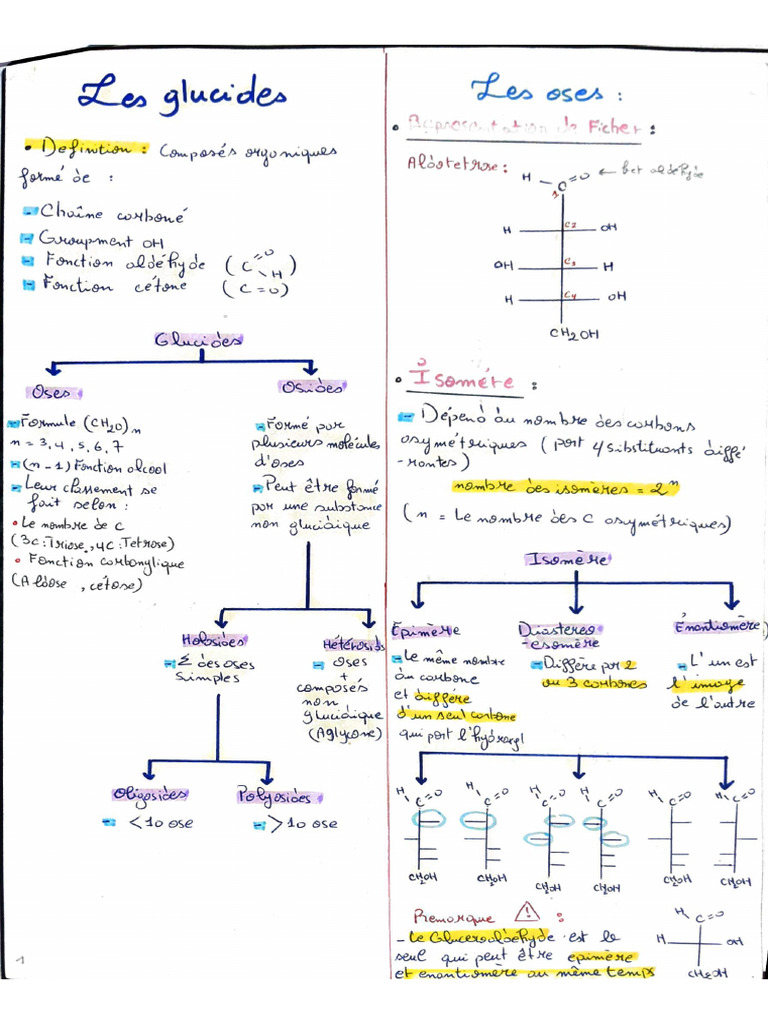 Les glucides
• Definition : Composés organiques
formé de :
- Chaîne carboné
- Groupment OH
- Fonction aldéhyde ( C =O H )
- Fonction cétone ( C = O )
Glucides
Oses
- Formule (CH2O)n
n = 3, 4, 5, 6, 7
- (n - 1) Fonction alcool
- Leur classement se
fait selon :
• Le nombre de C
(3C : Triose, 4C : Tetrose)
• Fonction carbonylique
(Aldose, cétose)
Osides
- Formé par
plusieurs molécules
d'oses
- Peut être formé
par une substance
non glucidique
Holosides
- Σ des oses
simples
Hétérosids
- Oses
+
composés
non
glucidique
(Aglycone)
Oligosides
- < 10 ose
Polyosides
- > 10 ose
1
Les oses :
• Représentation de Ficher :
Aldotetrose :
H C =O ←
1
H C2 OH
OH C3 H
H C4 OH
CH2OH
• Isomére :
- Dépend du nombre des carbons
asymétriques ( port 4 substituants diffé
-rentes)
nombre des isomères = 2^n
( n = Le nombre des C asymétriques)
Isomère
Épimère
- Le même nombre
du carbone
et diffère
d'un seul carbone
qui port l'hydroxyl
Diastereo
-esomère
- Différe par 2
ou 3 carbones
Énantiomère)
- L'un est
l'image
de l'autre
H C =O H C =O H C =O H C =O H C =O H C =O
CH2OH CH2OH CH2OH CH2OH CH2OH CH2OH
Remarque ! :
- Le Gluceraldéhyde est le
seul qui peut être epimère
et enantiomère au même temps
H C =O
H OH
CH2OH